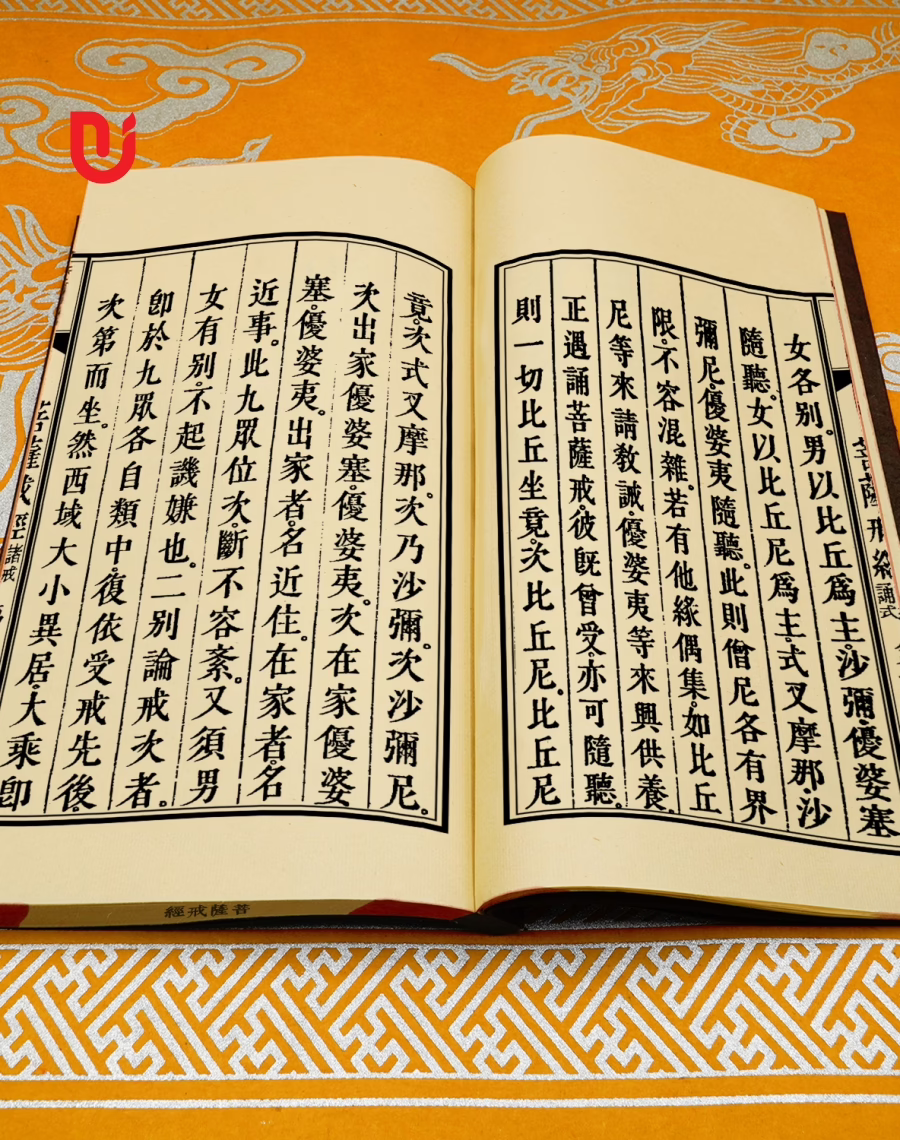 菩薩戒經 誦式
女各別。男以比丘爲主。沙彌。優婆塞
隨聽。女以比丘尼爲主。式叉摩那。沙
彌尼。優婆夷隨聽。此則僧尼各有界
限。不容混雜。若有他緣偶集。如比丘
尼等來請敎誡。優婆夷等來興供養。
正遇誦菩薩戒。彼旣曾受。亦可隨聽。
則一切比丘坐竟。次比丘尼。比丘尼
竟。次式叉摩那。次乃沙彌。次沙彌尼。
次出家優婆塞。優婆夷。次在家優婆
塞。優婆夷。出家者。名近住。在家者。名
近事。此九眾位次。斷不容紊。又須男
女有別。不起譏嫌也。二別論戒次者。
卽於九眾各自類中。復依受戒先後。
次第而坐。然西域大小異居。大乘卽
菩薩戒經 諸戒
菩薩戒經